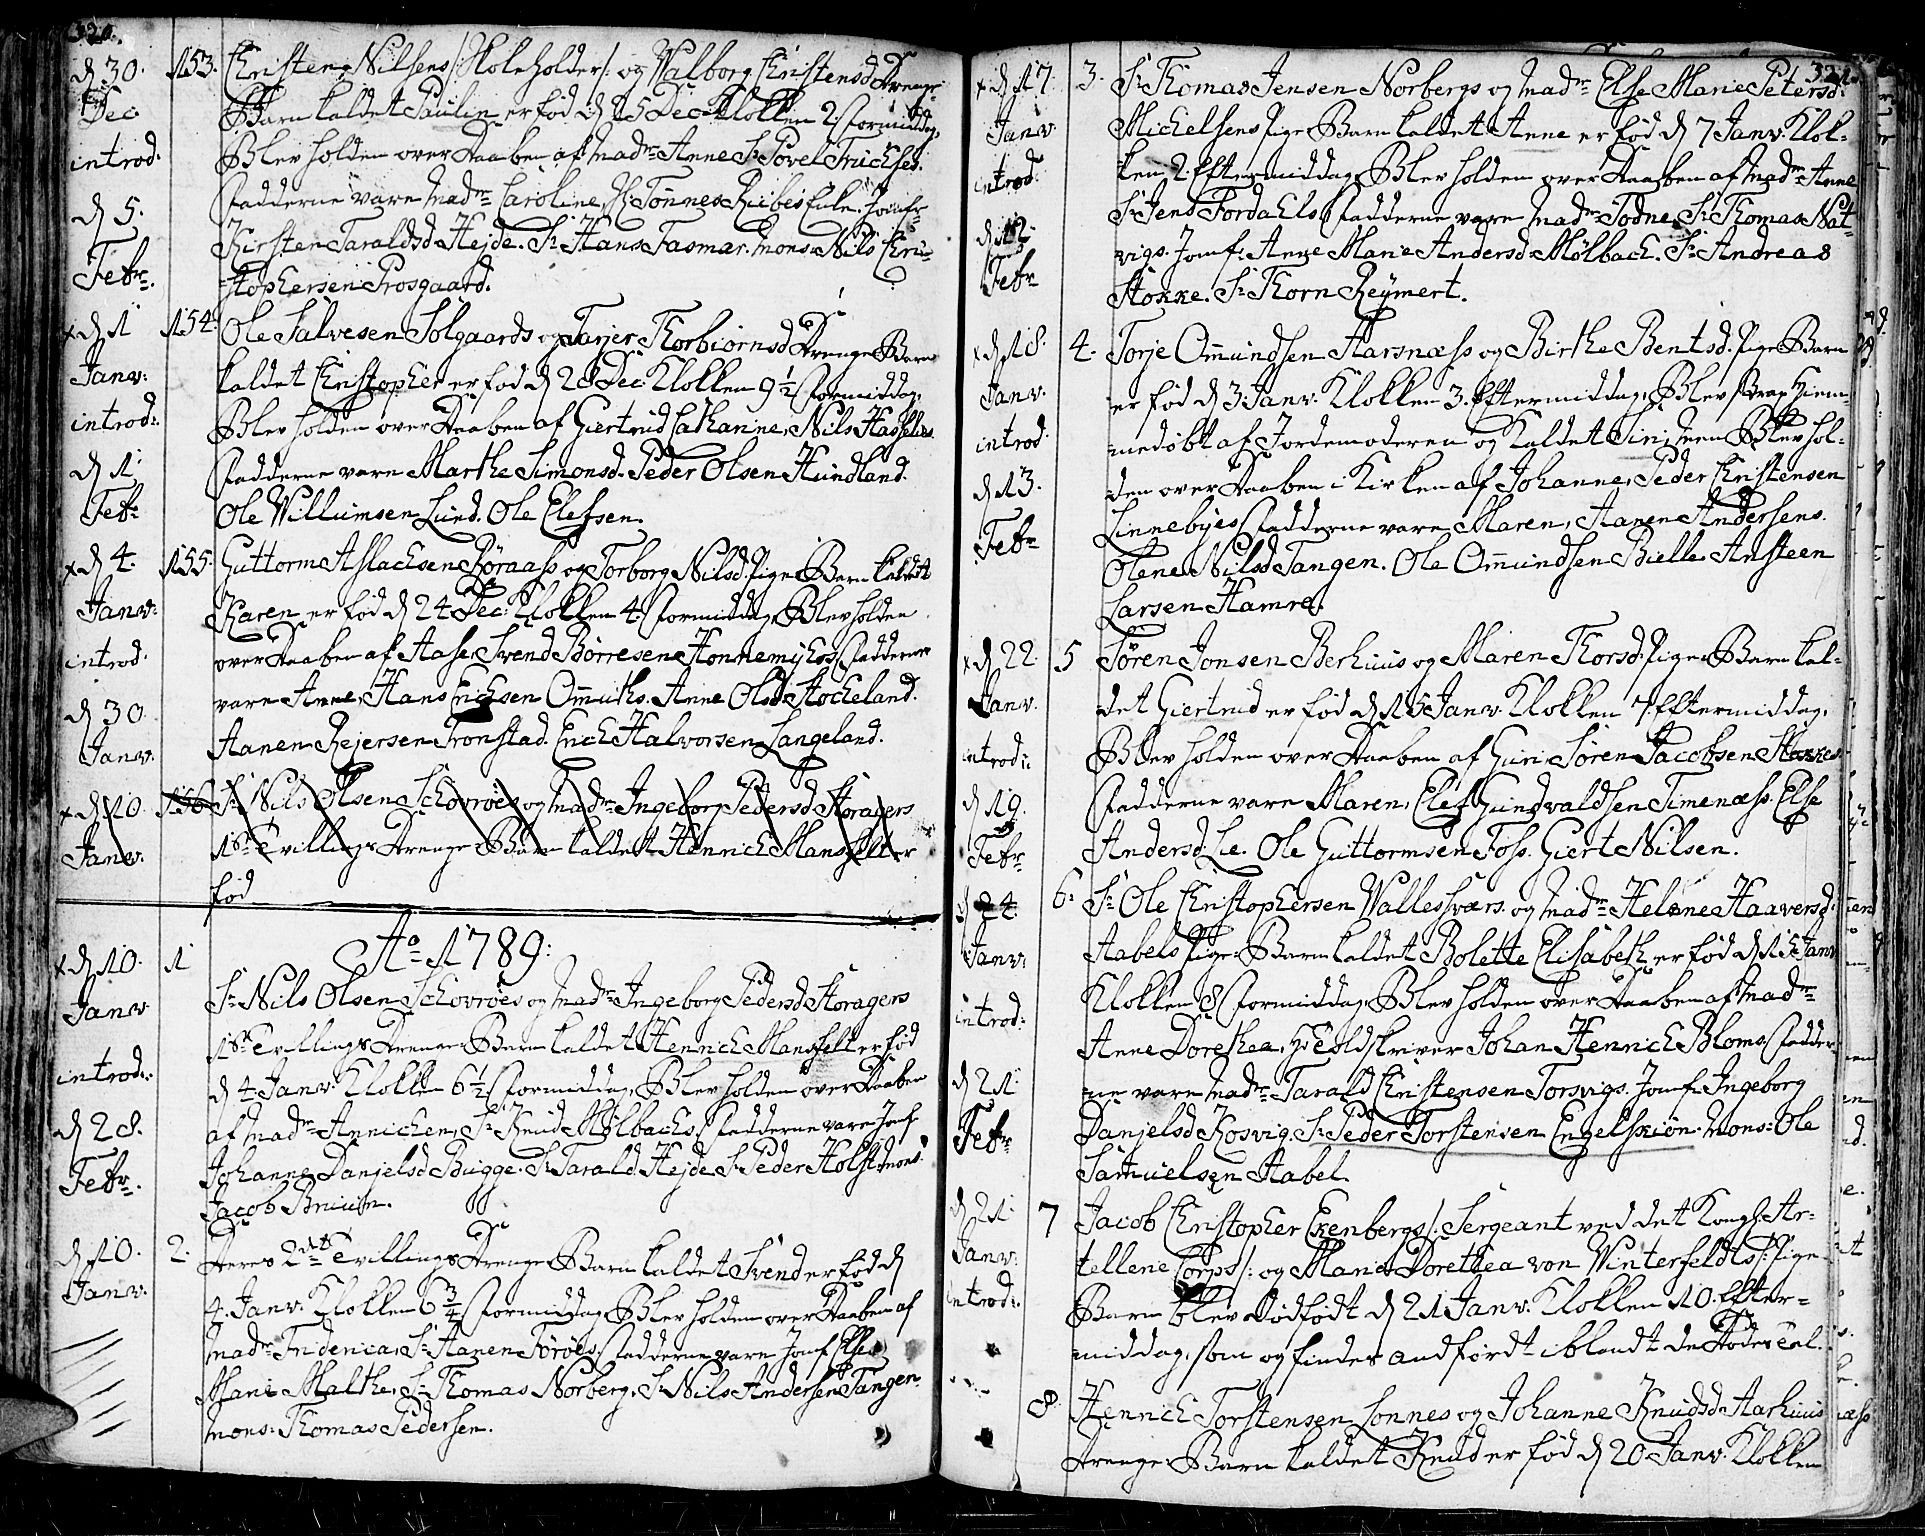 320.
d 30. Dec. introd: d 5. Febr.
153. Christen Nilsens /: Skoleholder :/ og Walborg Christensd. Drenge-
Barn kaldet Paulin er fød d 25 Dec. Klokken 2. formiddag,
Blev holden over Daaben af Madme Anne, Sr Povel Truchses.
Fadderne vare Madme Caroline, Tønnes Riibes Jomfr
Kirsten Taraldsd Hejde. Sr Hans Fasmar. Mons. Nils Chri-
stophersen Prosgaard.
x d 1 Janv: introd: d 1 Febr
154. Ole Salvesen Solgaards og Tarjer Thorbiørnsd Drenge Barn
kaldet Christopher er fød d 28 Dec. Klokken 9 1/2 formiddag,
Blev holden over Daaben af Giertrud Catharine, Nils Hasselies
Fadderne vare Marthe Simonsd. Peder Olsen Hundland.
Ole Willumsen Lund. Ole Elefsen.
x d 4. Janv: introd. d 30 Janv.
155. Guttorm Aslachsen Røraass og Torborg Nilsd. Pige Barn kaldet
Karen er fød d 24 Dec: Klokken 4. formiddag, Blev holden
over Daaben af Aase, Svend Børresen Honnemyhrs. Fadderne
vare Anne, Hans Erichsen Omuths. Anne Olsd. Stocheland.
Aanen Rejersen Tronstad. Erich Halvorsen Langeland.
x d 10. Janv.
156 Sr Nils Olsen Schovrøes og Madme Ingeborg Pedersd Storagers
1ste Tvillings Drenge Barn kaldet Henrich Mansfelt er
fød
Ao 1789:
x d 10. Janv introd: d 28. Febr.
1
Sr Nils Olsen Schovrøes og Madme Ingeborg Pedersd Storagers
1ste Tvillings Drenge Barn kaldet Henrich Mansfelt er fød
d 4 Janv. Klokken 6 1/2 formiddag, Blev holden over Daaben
af Madme Annichen, Sr Knud Mølbachs, Fadderne vare Jomf.
Johanne Danjelsd Bugge. Sr Tarald Hejde. Sr Peder Holst. Mons:
Jacob Bruun.
d 10. Janv.
2. Deres 2den Tvillings Drenge Barn kaldet Svend er fød d
4. Janv. Klokken 6 3/4 formiddag, Blev holden over Daaben af
Madme Fridericia, Sr Aanen Sørøes, Fadderne vare Jomf. Else
Marie Malthe, Sr Thomas Norberg, Sr Nils Andersen Tangen
Mons: Thomas Pedersen.
321.
x d 17. Janv. introd: d 12. Febr
3. Sr Thomas Jensen Norbergs og Madme Else Marie Petersd:
Michelsens Pige Barn kaldet Anne er fød d 7 Janv. Klok-
ken 2. Eftermiddag, Blev holden over Daaben af Madme Anne
Sr Jens Tordahls, Fadderne vare Madme Todne, Sr Thomas Nat-
vigs. Jomf: Anne Marie Andersd Mølbach. Sr Andreas
Stokke. Sr Thorn Reymert.
x d 18. Janv. introd: d 13. Febr
4. Torje Omundsen Harsnæss og Birthe Bentsd. Pige Barn
er fød d 3. Janv. Klokken 3. Eftermiddag, Blev strax Hiem-
medøbt af Jordemoderen og kaldet Siri, Men Blev hol-
den over Daaben i Kirken af Johanne, Peder Christensen
Linnebyes, Fadderne vare Maren, Aanen Andersens.
Olene Nilsd Tangen. Ole Omundsen Bielle. Ansteen
Larsen Hamre.
x d 22. Janv. introd: d 19. Febr
5 Søren Jonsen Berhuus og Maren Thorsd. Pige Barn kal-
det Giertrud er fød d 15 Janv. Klokken 7. Eftermiddag,
Blev holden over Daaben af Guri, Søren Jacobsen Stokkes
Fadderne vare Maren, Elef Gundvaldsen Timenæss. Else
Andersd. Lie. Ole Guttormsen Foss. Giert Nilsen.
d 24. Janv. introd: d 21. Febr
6. Sr Ole Christophersen Wallessværs og Madme Helene Haaversd:
Aabels Pige Barn kaldet Bolette Elisabeth er fød d 15 Janv
Klokken 8 formiddag, Blev holden over Daaben af Madme
Anne Dorethea, Hr Toldskriver Johan Henrich Bloms, Fadder-
ne vare Madme Tarald Christensen Torsvigs. Jomf. Ingeborg
Danjelsd Kosvig. Sr Peder Torstensen Engelskiøn. Mons: Ole
Samuelsen Aabel.
d 21. Janv. introd:
7 Jacob Christopher Ekenbergs /: Sergeant ved det Kongl. Ar-
tellerie Corps :/ og Marie Dorethea von Winterfeldts Pige-
Barn blev Dødfødt d 21 Janv. Klokken 10. Efter-
middag, som og findes andført iblandt de Dødes Tal.
8. Henrich Torstensen Sonnes og Johanne Knudsd Aarhuus
Drenge Barn kaldet Knud er fød d 20 Janv. Klokken